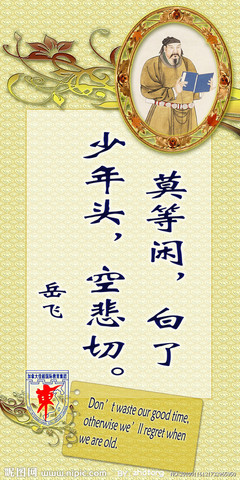 莫等闲，白了
少年头，空悲切。
岳飞
東
Don't waste our good time,
otherwise we'll regret when
we are old.
昵图网
www.nipic.com